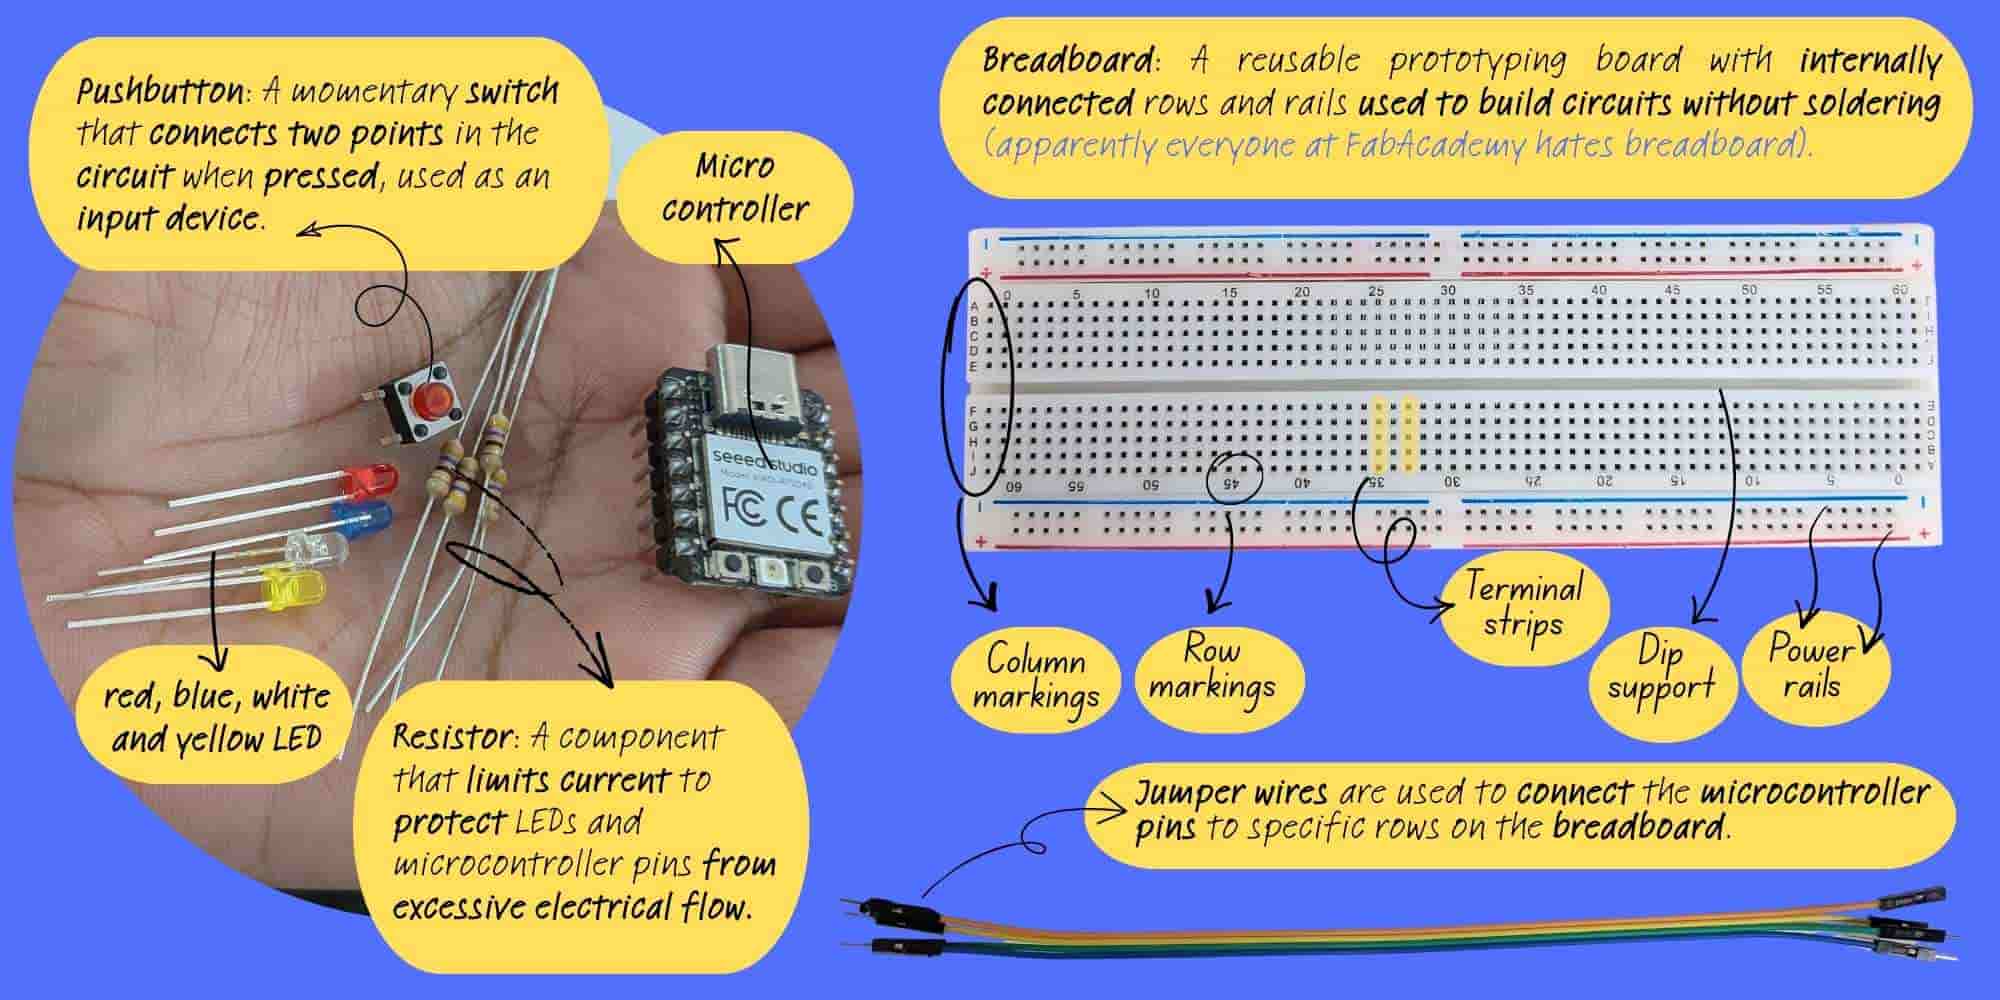 Pushbutton: A momentary switch
that connects two points in the
circuit when pressed, used as an
input device.
Micro
controller
Breadboard: A reusable prototyping board with internally
connected rows and rails used to build circuits without soldering
(apparently everyone at FabAcademy hates breadboard).
0 5 10 15 20 25 30 35 40 45 50 55 60
A
B
C
D
E
F
G
H
I
J
60 55 50 45 40 35 30 25 20 15 10 5 0
seeed studio
FC CE
Column
markings
Row
markings
Terminal
strips
Dip
support
Power
rails
red, blue, white
and yellow LED
Resistor: A component
that limits current to
protect LEDs and
microcontroller pins from
excessive electrical flow.
Jumper wires are used to connect the microcontroller
pins to specific rows on the breadboard.